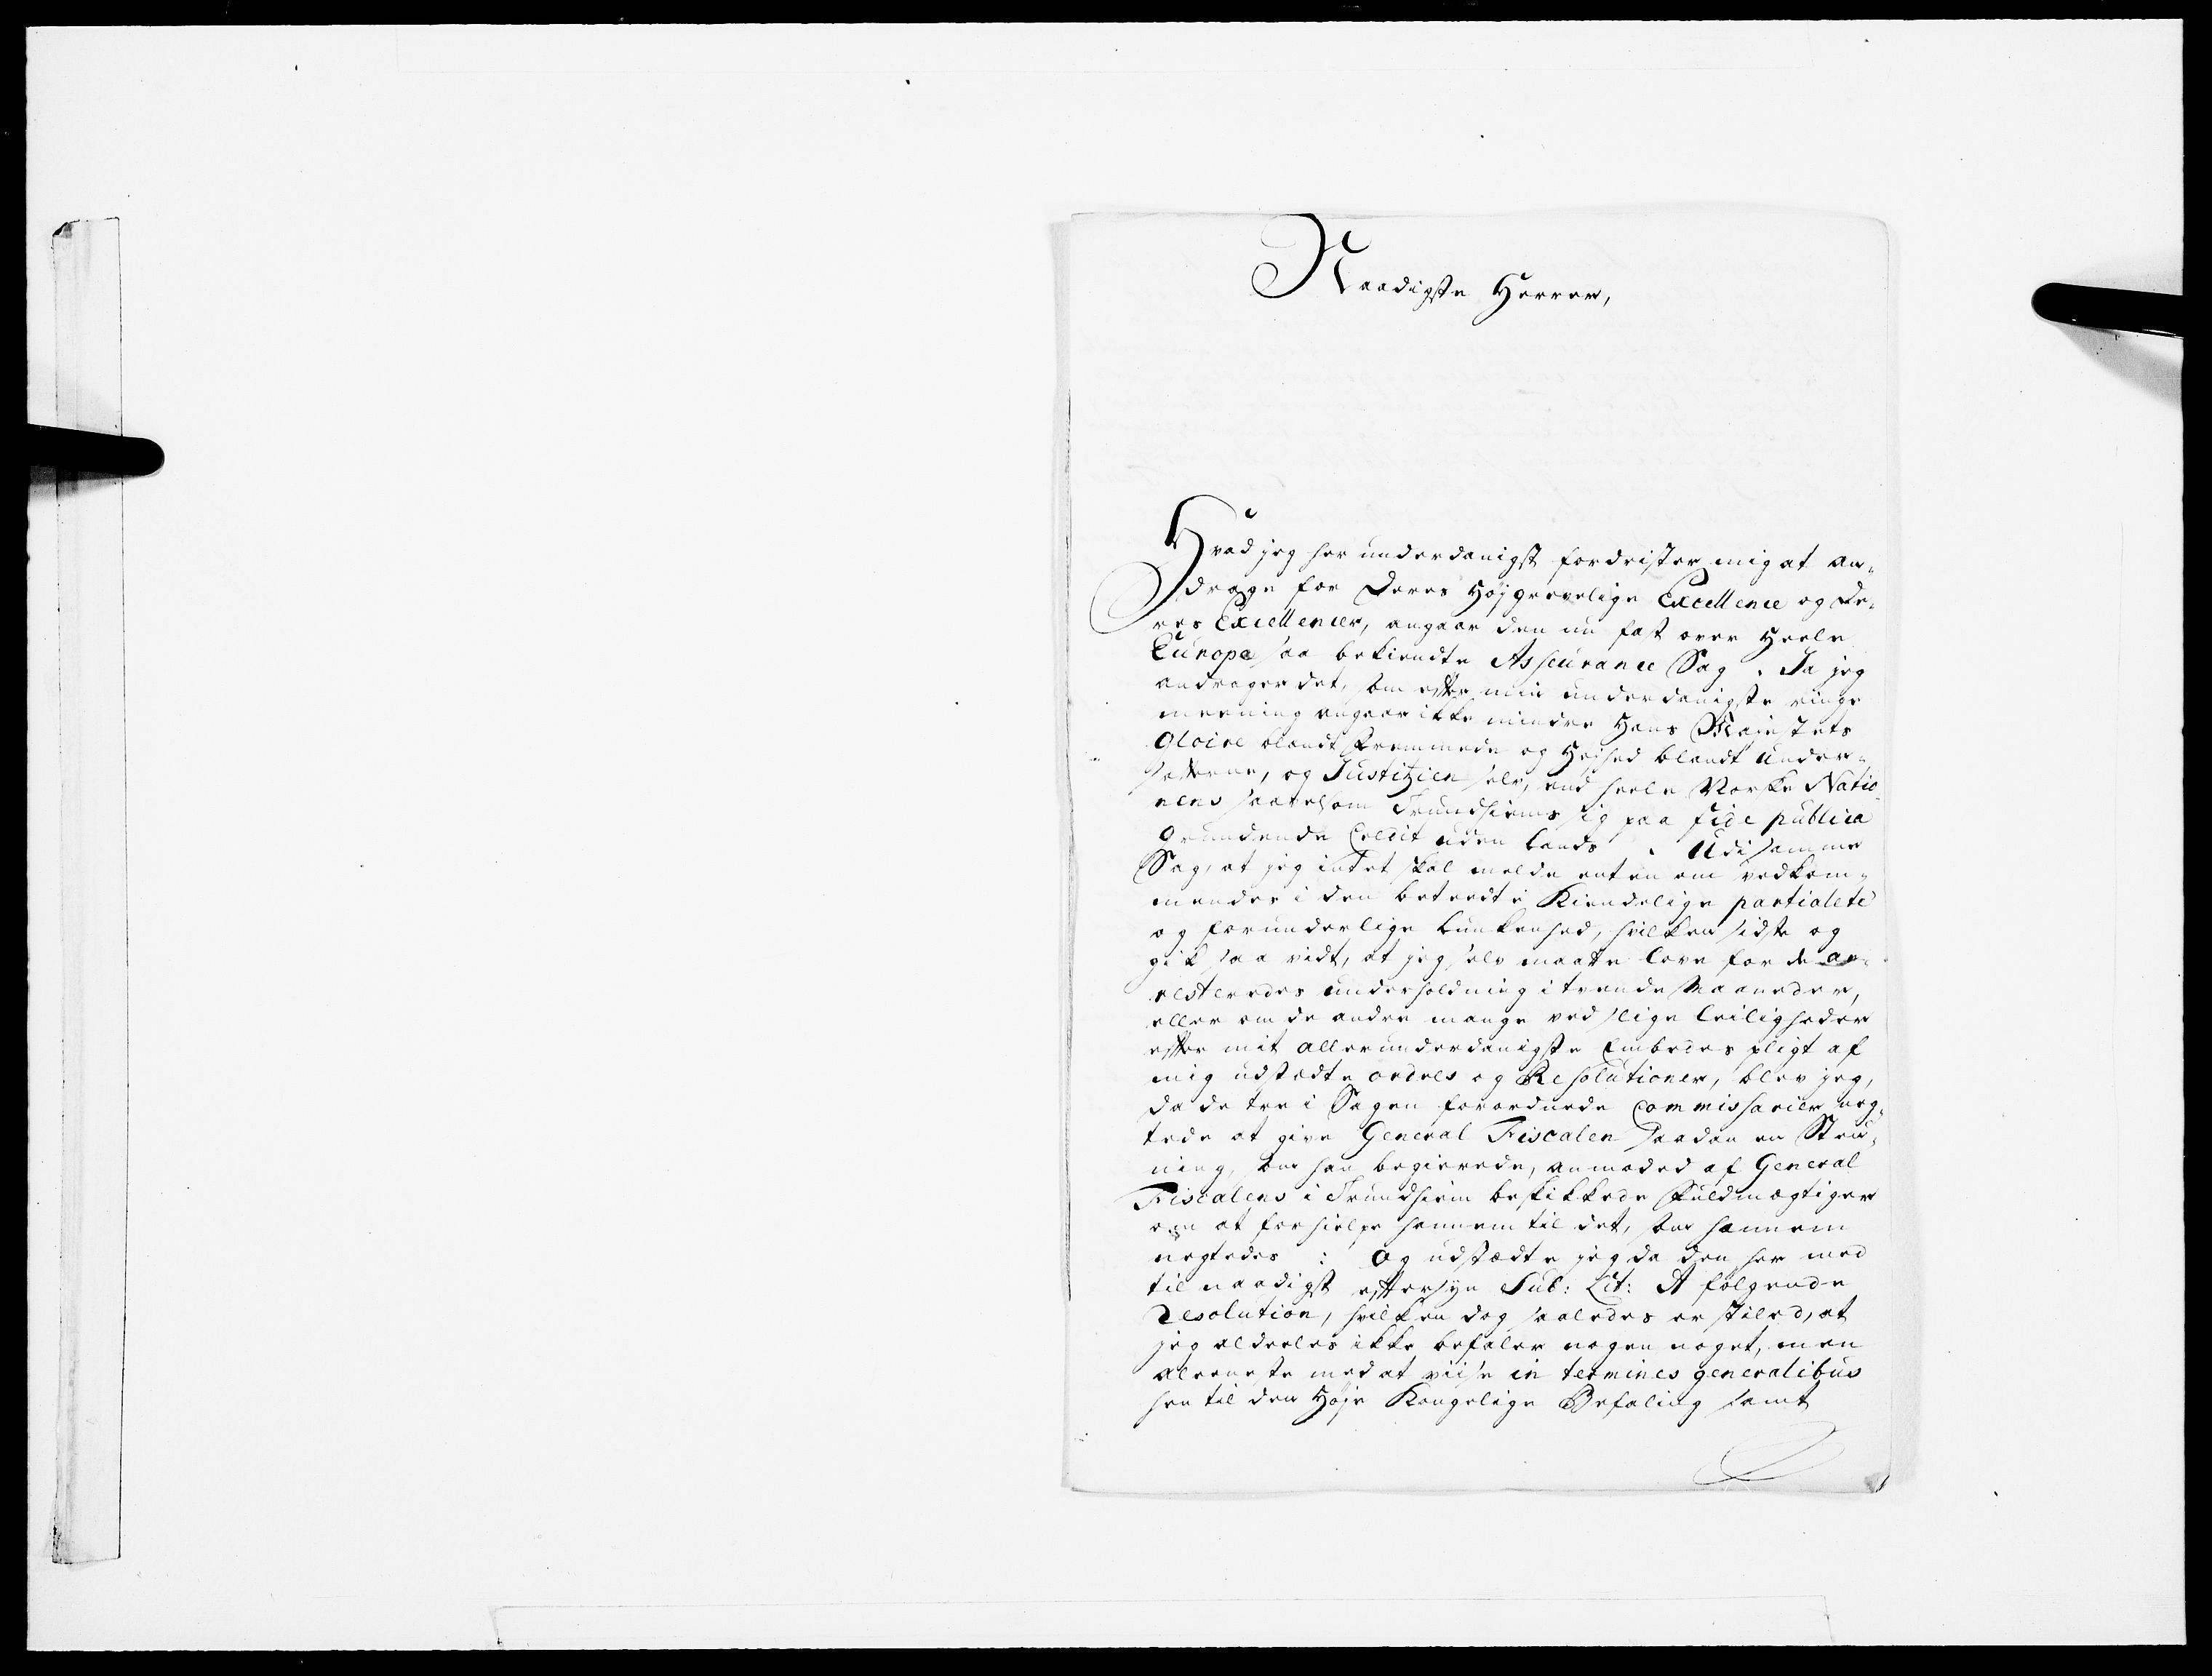 Naadigste Herrer,
Hvad jeg her underdanigst fordrister mig at an¬
drage for Deres Højgrevelige Excellence og De¬
res Excellencer, angaar den nu fast over Heele
Europa saa bekiendte Asseurance Sag. Ja jeg
andrager det, som efter min underdanigste ringe
meening angaar ikke mindre Hans Majestets
Gloire blandt Fremmede og Højhed blandt Under¬
satterne, og Justitzien selv, end heele Norske Natio¬
nens saavelsom Trundhiems sig paa fide publica
grundende Credit uden Lands. Udi samme
Sag, at jeg intet skal melde enten om vedkom¬
mendes i den beteedte Kiendelige partialete
og forunderlige Lunkenhed, hvilken sidste og
gik saa vidt, at jeg selv maatte love for de ar¬
resteredes underholdning i trende Maaneder,
eller om de andre mange ved slige Leiligheder
efter mit allerunderdanigste Embedes pligt af
mig udstædte ordres og Resolutioner, blev jeg,
da de tre i Sagen forordnede Commissarier neg¬
tede at give General Fiscalen saadan en Stev¬
ning, som han begierede, anmoded af General
Fiscalens i Trundhiem beskikkede Fuldmægtiger
om at forhielpe hannem til det, som hannem
negtedes: Og udstædte jeg da den her med
til naadigst eftersyn Sub: Lit: A følgende
Resolution, hvilken dog saaledes er stiled, at
jeg aldeeles ikke befaler nogen noget, men
aleeneste med at viise in terminis generalibus
hen til den Høje Kongelige Befaling samt